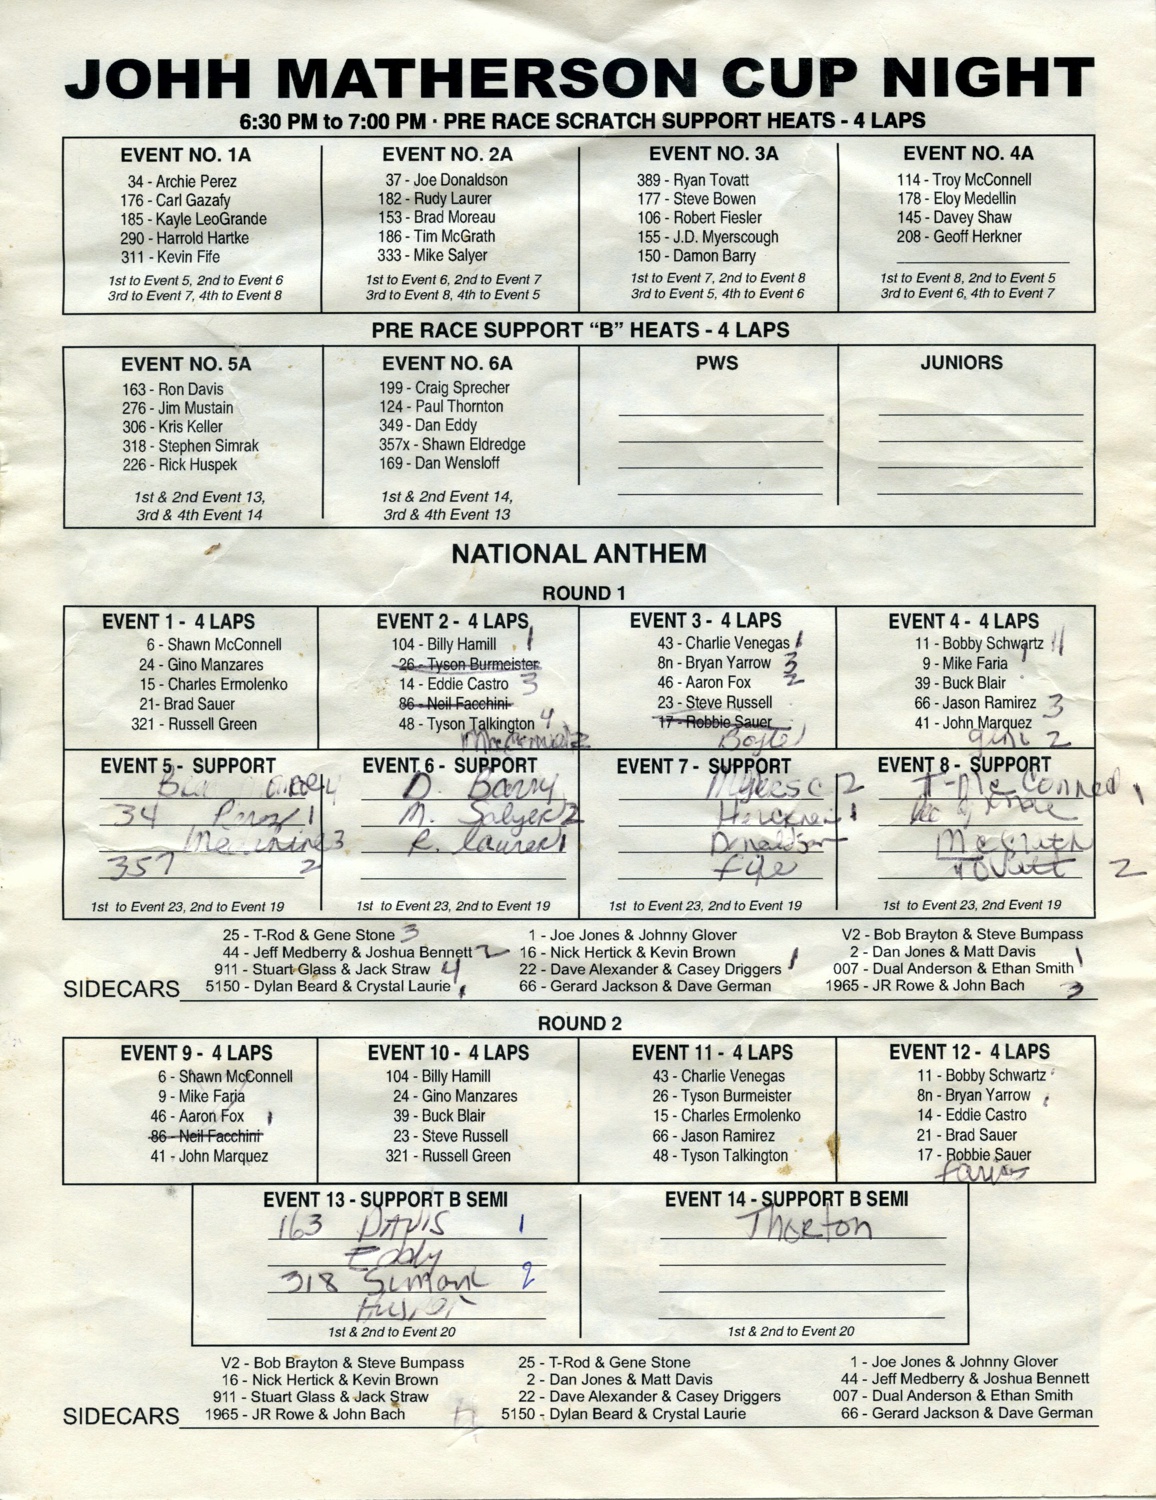 JOHH MATHERSON CUP NIGHT
6:30 PM to 7:00 PM · PRE RACE SCRATCH SUPPORT HEATS - 4 LAPS
EVENT NO. 1A
34 - Archie Perez
176 - Carl Gazafy
185 - Kayle LeoGrande
290 - Harrold Hartke
311 - Kevin Fife
1st to Event 5, 2nd to Event 6
3rd to Event 7, 4th to Event 8
EVENT NO. 2A
37 - Joe Donaldson
182 - Rudy Laurer
153 - Brad Moreau
186 - Tim McGrath
333 - Mike Salyer
1st to Event 6, 2nd to Event 7
3rd to Event 8, 4th to Event 5
EVENT NO. 3A
389 - Ryan Tovatt
177 - Steve Bowen
106 - Robert Fiesler
155 - J.D. Myerscough
150 - Damon Barry
1st to Event 7, 2nd to Event 8
3rd to Event 5, 4th to Event 6
EVENT NO. 4A
114 - Troy McConnell
178 - Eloy Medellin
145 - Davey Shaw
208 - Geoff Herkner
1st to Event 8, 2nd to Event 5
3rd to Event 6, 4th to Event 7
PRE RACE SUPPORT “B” HEATS - 4 LAPS
EVENT NO. 5A
163 - Ron Davis
276 - Jim Mustain
306 - Kris Keller
318 - Stephen Simrak
226 - Rick Huspek
1st & 2nd Event 13,
3rd & 4th Event 14
EVENT NO. 6A
199 - Craig Sprecher
124 - Paul Thornton
349 - Dan Eddy
357x - Shawn Eldredge
169 - Dan Wensloff
1st & 2nd Event 14,
3rd & 4th Event 13
PWS
JUNIORS
NATIONAL ANTHEM
ROUND 1
EVENT 1 - 4 LAPS
6 - Shawn McConnell
24 - Gino Manzares
15 - Charles Ermolenko
21- Brad Sauer
321 - Russell Green
EVENT 2 - 4 LAPS
104 - Billy Hamill 1
26 - Tyson Burmeister
14 - Eddie Castro 3
86 - Neil Facchini
48 - Tyson Talkington 4
2
EVENT 3 - 4 LAPS
43 - Charlie Venegas 1
8n - Bryan Yarrow 3
46 - Aaron Fox 2
23 - Steve Russell
17 - Robbie Sauer
EVENT 4 - 4 LAPS
11 - Bobby Schwartz
9 - Mike Faria 1
39 - Buck Blair
66 - Jason Ramirez 3
41 - John Marquez
2
EVENT 5 - SUPPORT
34 Perez 1
3
357 2
1st to Event 23, 2nd to Event 19
EVENT 6 - SUPPORT
D. Barry
M. Salyer 2
R. Laurer 1
1st to Event 23, 2nd to Event 19
EVENT 7 - SUPPORT
2
1
Donaldson
Fife
1st to Event 23, 2nd to Event 19
EVENT 8 - SUPPORT
T-McConnell 1
McGrath
Tovatt 2
1st to Event 23, 2nd to Event 19
SIDECARS
25 - T-Rod & Gene Stone 3
44 - Jeff Medberry & Joshua Bennett 2
911 - Stuart Glass & Jack Straw 4
5150 - Dylan Beard & Crystal Laurie 1
1 - Joe Jones & Johnny Glover
16 - Nick Hertick & Kevin Brown
22 - Dave Alexander & Casey Driggers 1
66 - Gerard Jackson & Dave German
V2 - Bob Brayton & Steve Bumpass
2 - Dan Jones & Matt Davis 1
007 - Dual Anderson & Ethan Smith
1965 - JR Rowe & John Bach 3
ROUND 2
EVENT 9 - 4 LAPS
6 - Shawn McConnell
9 - Mike Faria
46 - Aaron Fox 1
86 - Neil Facchini
41 - John Marquez
EVENT 10 - 4 LAPS
104 - Billy Hamill
24 - Gino Manzares
39 - Buck Blair
23 - Steve Russell
321 - Russell Green
EVENT 11 - 4 LAPS
43 - Charlie Venegas
26 - Tyson Burmeister
15 - Charles Ermolenko
66 - Jason Ramirez
48 - Tyson Talkington
EVENT 12 - 4 LAPS
11 - Bobby Schwartz
8n - Bryan Yarrow
14 - Eddie Castro
21 - Brad Sauer
17 - Robbie Sauer
EVENT 13 - SUPPORT B SEMI
163 DAVIS 1
Eddy
318 2
1st & 2nd to Event 20
EVENT 14 - SUPPORT B SEMI
Thorton
1st & 2nd to Event 20
SIDECARS
V2 - Bob Brayton & Steve Bumpass
16 - Nick Hertick & Kevin Brown
911 - Stuart Glass & Jack Straw
1965 - JR Rowe & John Bach
25 - T-Rod & Gene Stone
2 - Dan Jones & Matt Davis
22 - Dave Alexander & Casey Driggers
5150 - Dylan Beard & Crystal Laurie
1 - Joe Jones & Johnny Glover
44 - Jeff Medberry & Joshua Bennett
007 - Dual Anderson & Ethan Smith
66 - Gerard Jackson & Dave German